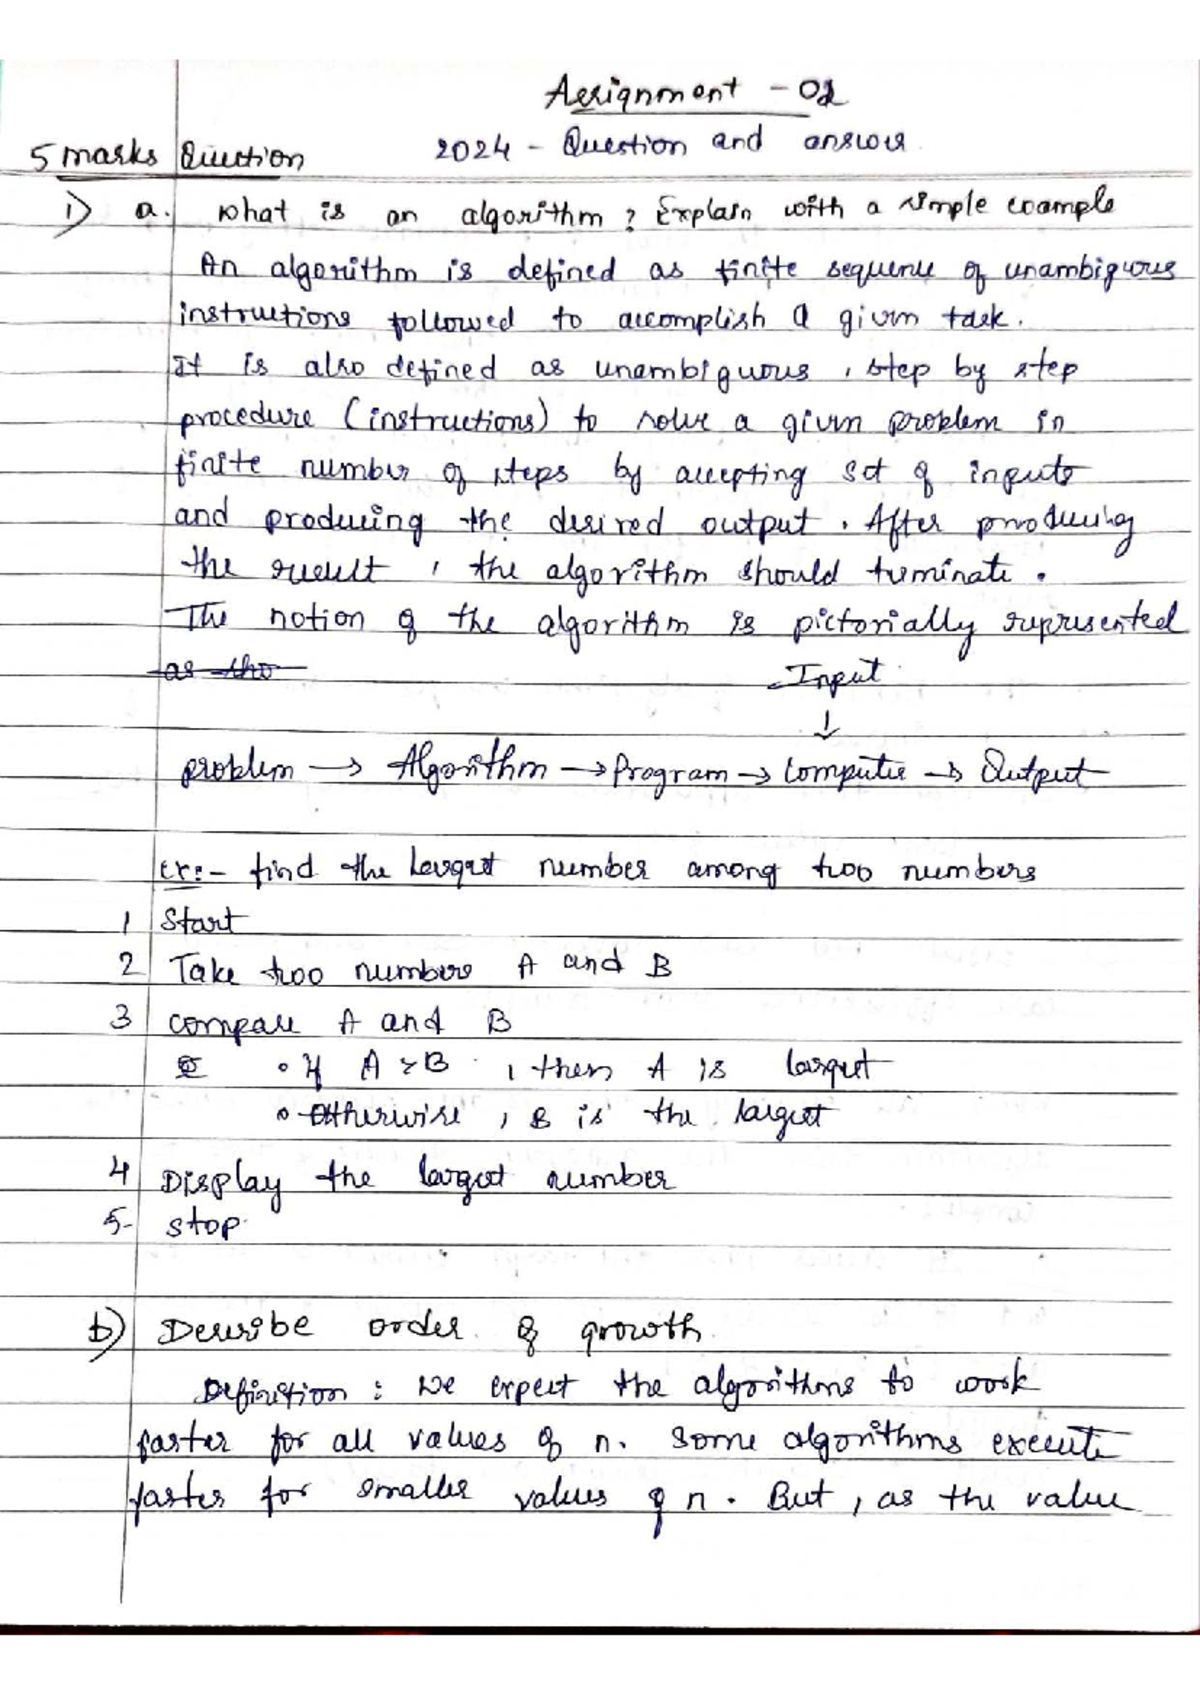 Assignment - 02
2024 - Question and answer.
5 marks Question
1) a. What is an algorithm? Explain with a simple example
An algorithm is defined as finite sequence of unambiguous
instructions followed to accomplish a given task.
It is also defined as unambiguous, step by step
procedure (instructions) to solve a given problem in
finite number of steps by accepting set of inputs
and producing the desired output. After producing
the result, the algorithm should terminate.
The notion of the algorithm is pictorially represented
as the
Input
↓
problem → Algorithm → Program → Computer → Output
Ex:- find the largest number among two numbers
1 Start
2 Take two numbers A and B
3 compare A and B
• If A > B, then A is largest
• Otherwise, B is the largest
4 Display the largest number
5- stop.
b) Describe order of growth.
Definition: We expect the algorithms to work
faster for all values of n. Some algorithms execute
faster for smaller values of n. But, as the value